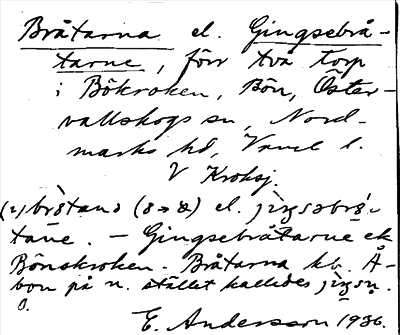 Bråtarna el. Gingsebrå-
tarne, förr två torp
i Bökroken, Bön, Öster-
vallskogs sn, Nord-
marks hd, Värml. l.
V Kroksj.
(2) brɷ̀tanə (8→ɷ) el. jìŋsəbrɷ̀-
tane. – Gingsebråtarne el.
Bönskroken. Bråtarna kb. Å-
bon på n. stället kallades jìŋsn.
O.
E. Andersson 1936.